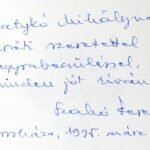 Matykó Mihályné
baráti szeretettel
nagyrabecsüléssel,
minden jót kívánva
Szabó Fere
oszháza, 1995. márc.